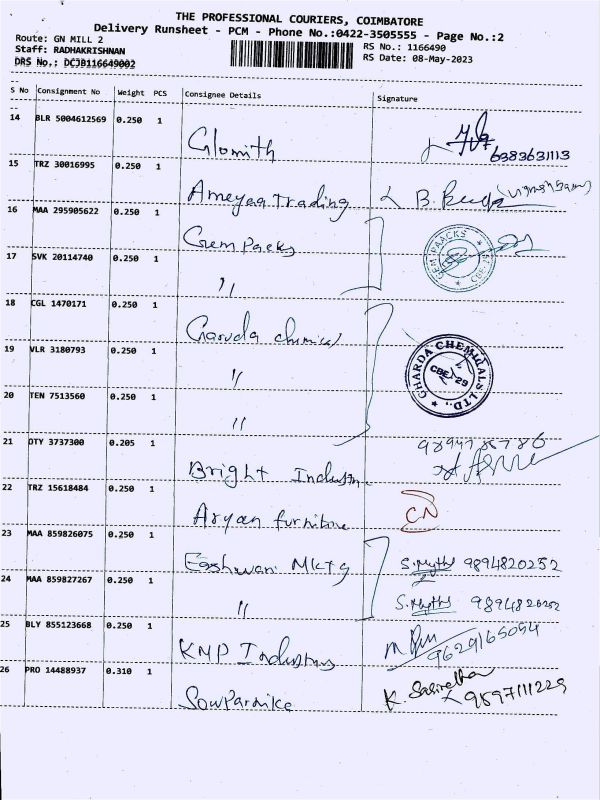 THE PROFESSIONAL COURIERS, COIMBATORE
Delivery Runsheet - PCM - Phone No.:0422-3505555 - Page No.:2
Route: GN MILL 2 RS No.: 1166490
Staff: RADHAKRISHNAN RS Date: 08-May-2023
DRS No.: DCJB116649002
S No Consignment No Weight PCS Consignee Details Signature
14 BLR 5004612569 0.250 1 Glomith 6383631113
15 TRZ 30016995 0.250 1 Ameyaa Trading B.
16 MAA 295905622 0.250 1 Gem Packs
GEM PAACKS CBE
17 SVK 20114740 0.250 1 "
18 CGL 1470171 0.250 1 Garuda chemical
GHARDA CHEMICALS LTD., CBE-29
19 VLR 3180793 0.250 1 "
20 TEN 7513560 0.250 1 "
21 OTY 3737300 0.205 1 Bright Industri
22 TRZ 15618484 0.250 1 Aryan furniture CN
23 MAA 859826075 0.250 1 Eashwari Mktg S.Mythi 9894820252
24 MAA 859827267 0.250 1 " S.Mythi 9894820252
25 BLY 855123668 0.250 1 KMP Industries 9629165094
26 PRO 14488937 0.310 1 Sowparnika K. 9597111229